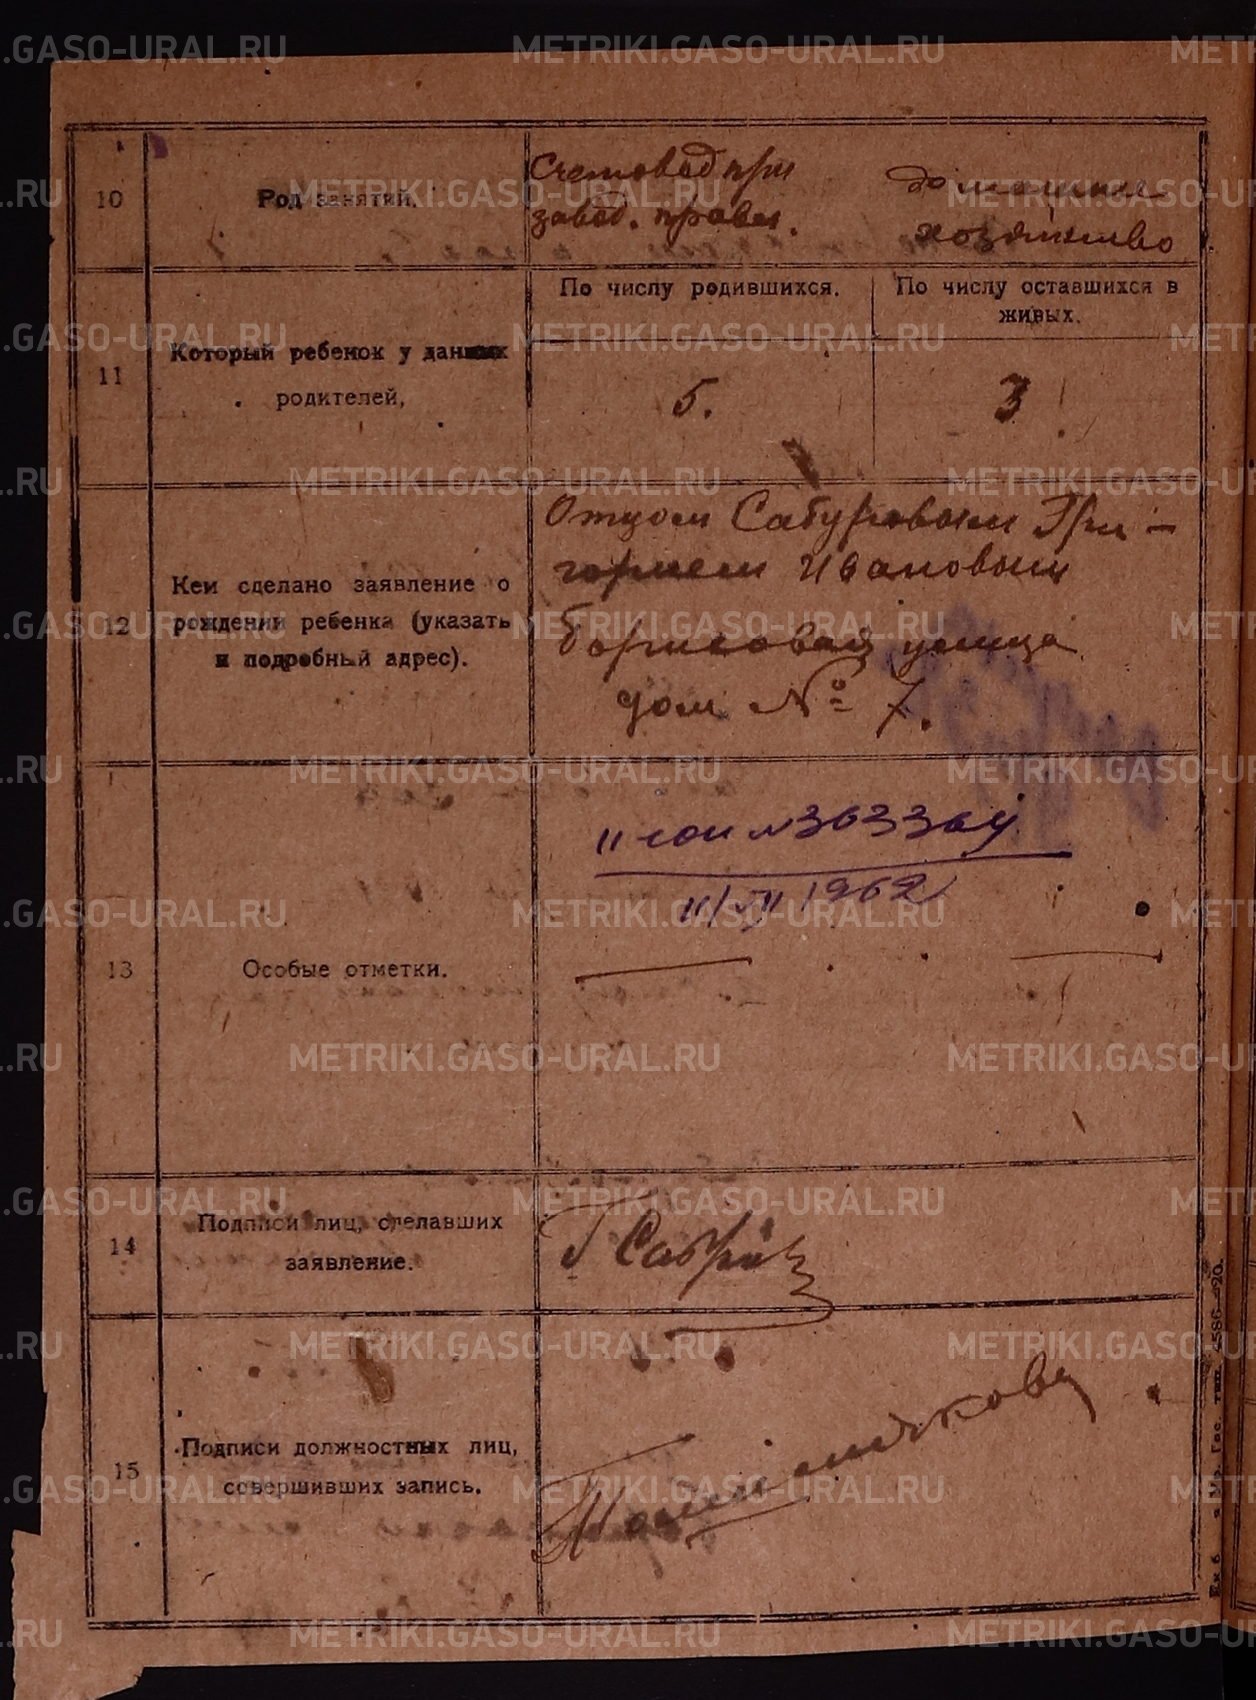 10
Род занятий.
Счетовод при
завод. правл.
домашнее
хозяйство
11
Который ребенок у данных
родителей,
По числу родившихся.
По числу оставшихся в
живых.
5.
3
12
Кем сделано заявление о
рождении ребенка (указать
и подробный адрес).
Отцом Сабуровым Гри-
горием Ивановым
Борисовая улица
дом № 7.
13
Особые отметки.
II-юи №363364
11/VII 1962
14
Подписи лиц, сделавших
заявление.
Г Сабуров
15
Подписи должностных лиц,
совершивших запись.
Ек б Гос. тип. 4586—20.
METRIKI.GASO-URAL.RU